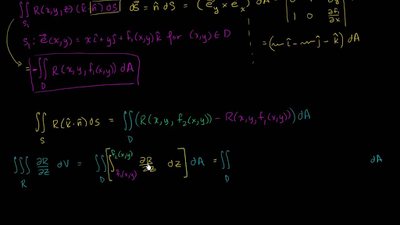 ∬_{S₁} R(x,y,z)(k̂·n̂)dS   dS⃗ = n̂ dS = (e⃗_y × e⃗_x) dA =
S₁: e⃗(x,y) = xî + yĵ + f₁(x,y)k̂ for (x,y)∈D
1 0 ∂f₁/∂x
= (~î − ~ĵ − k̂)
−∬_D R(x,y,f₁(x,y))dA
∬_S R(k̂·n̂)dS = ∬_D (R(x,y,f₂(x,y)) − R(x,y,f₁(x,y)))dA
∭_R ∂R/∂z dV = ∬_D [∫_{f₁(x,y)}^{f₂(x,y)} ∂R/∂z dz] dA = ∬_D dA